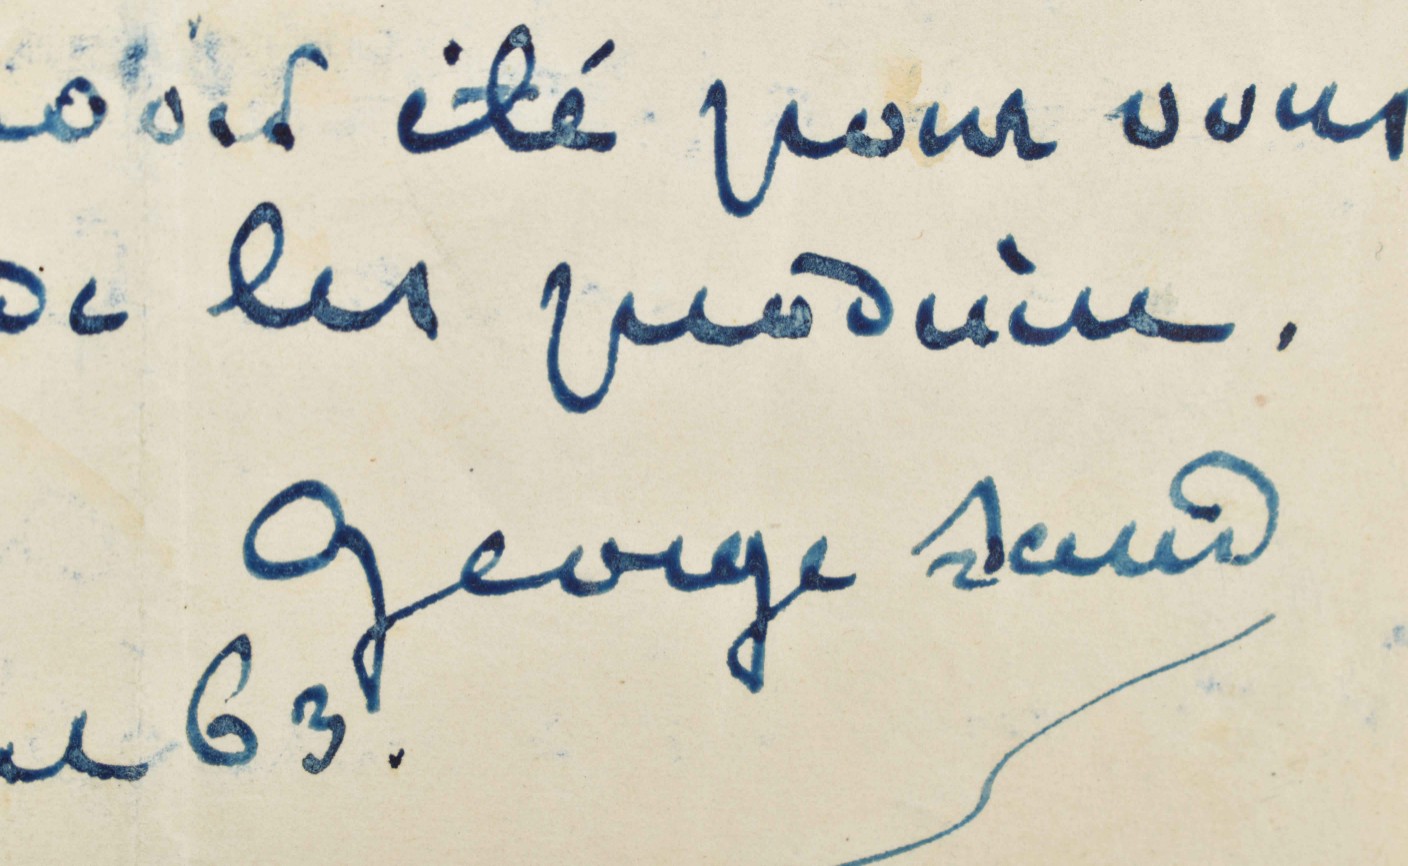 été pour vous
de les produire.
George Sand
63.